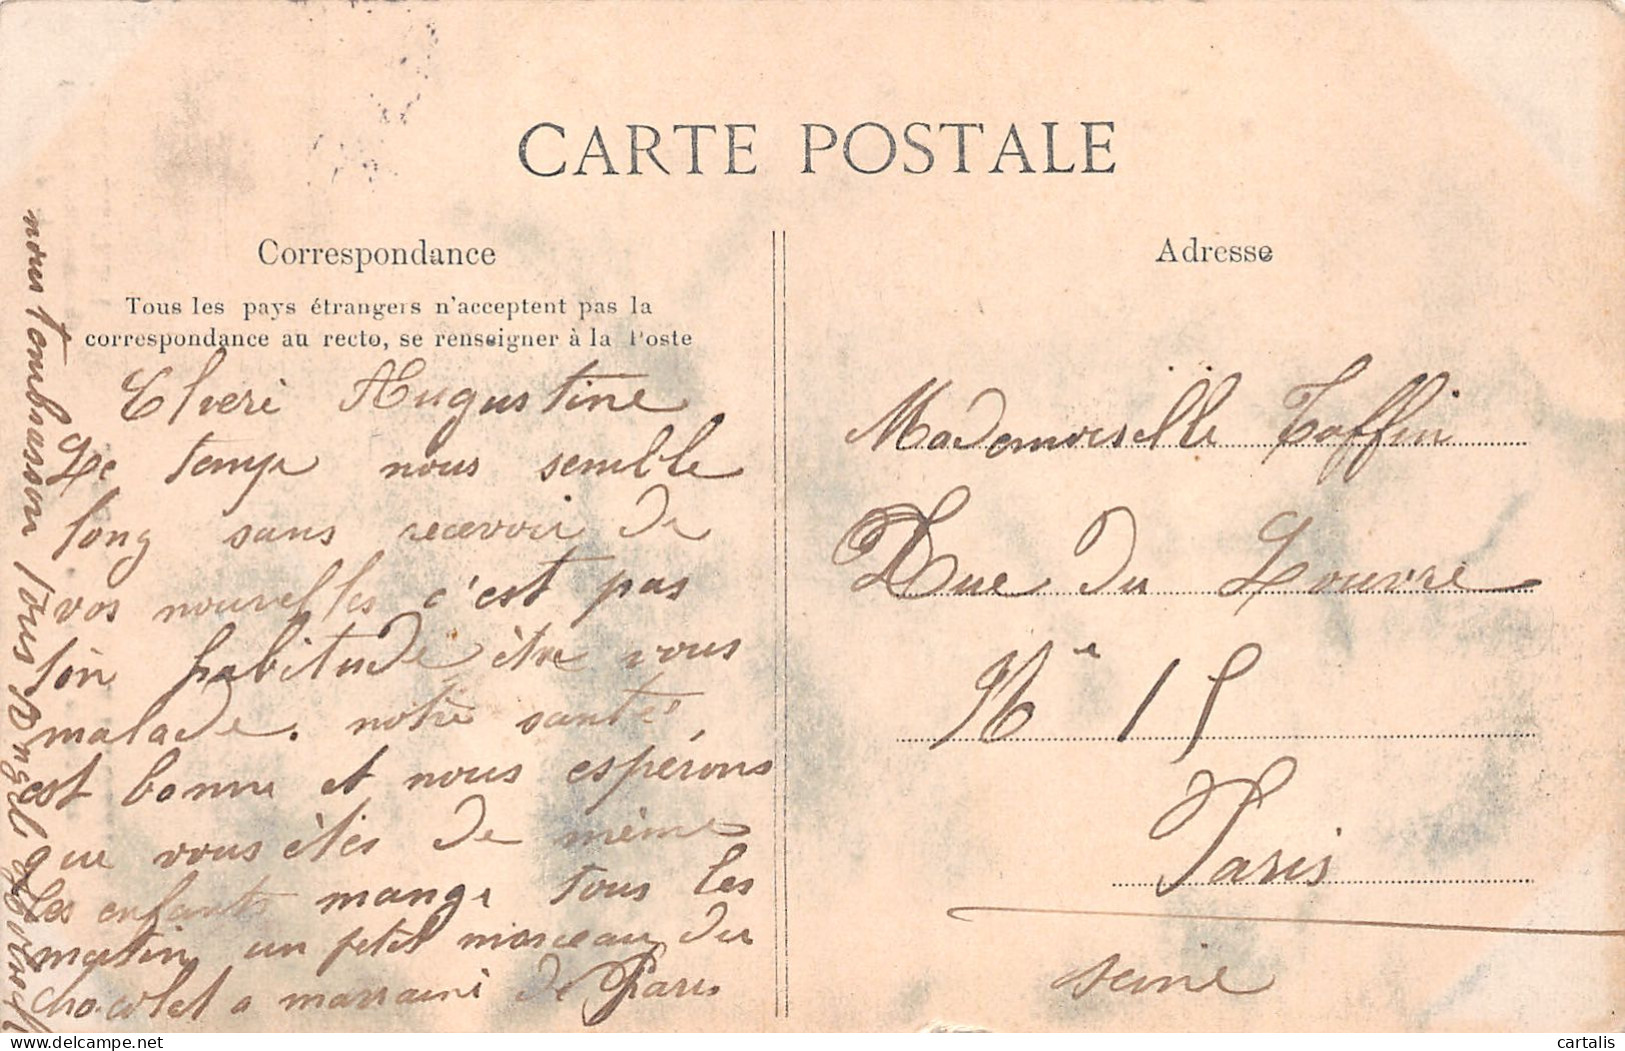 CARTE POSTALE
Correspondance
Tous les pays étrangers n'acceptent pas la
correspondance au recto, se renseigner à la Poste
Augustine
Le temp nous semble
long sans recevoir de
vos nouvelles c'est pas
ton habitude être vous
malade. notre santé
est bonne et nous espérons
que vous êtes de même
Les enfants mange tous les
matin un petit morceau du
chocolet a marraine de Paris
nous tembrasson tous
Adresse
Mademoiselle Toffin
Rue du Louvre
N° 15
Paris
seine
cartalis
delcampe.net